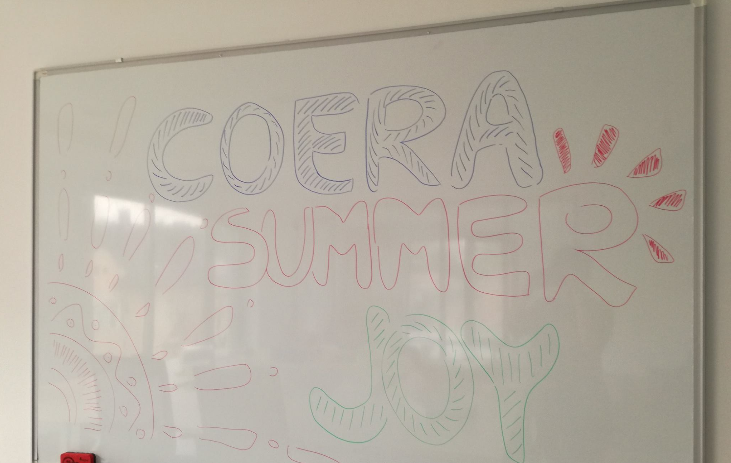 COERA
SUMMER
JOY